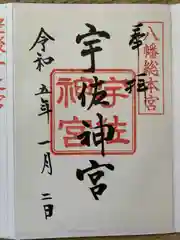 奉拝
八幡総本宮
宇佐神宮
宇佐
神宮
令和五年一月二日